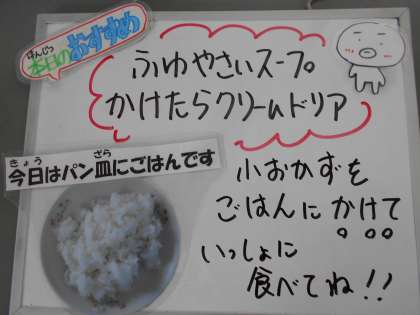 ほんじつ
本日のおすすめ
ふゆやさいスープ
かけたらクリームドリア
きょう ざら
今日はパン皿にごはんです
小おかずを
ごはんにかけて
いっしょに
食べてね!!